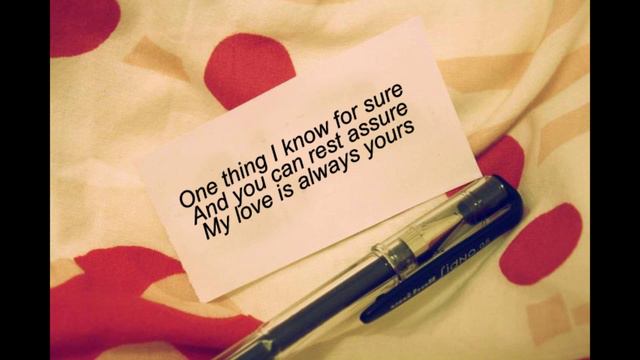 One thing I know for sure
And you can rest assure
My love is always yours
uni-ball Signo